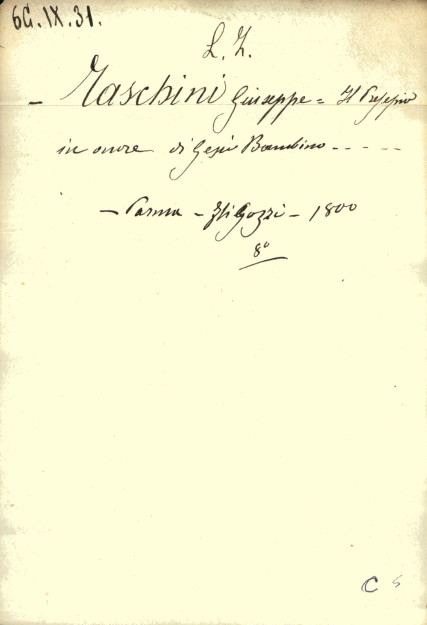 6G.IX.31.
L. Z.
- Taschini Giuseppe = Il Presepio
in onore di Gesù Bambino - - - - -
- Parma - Fli Gozzi - 1800
8°
C